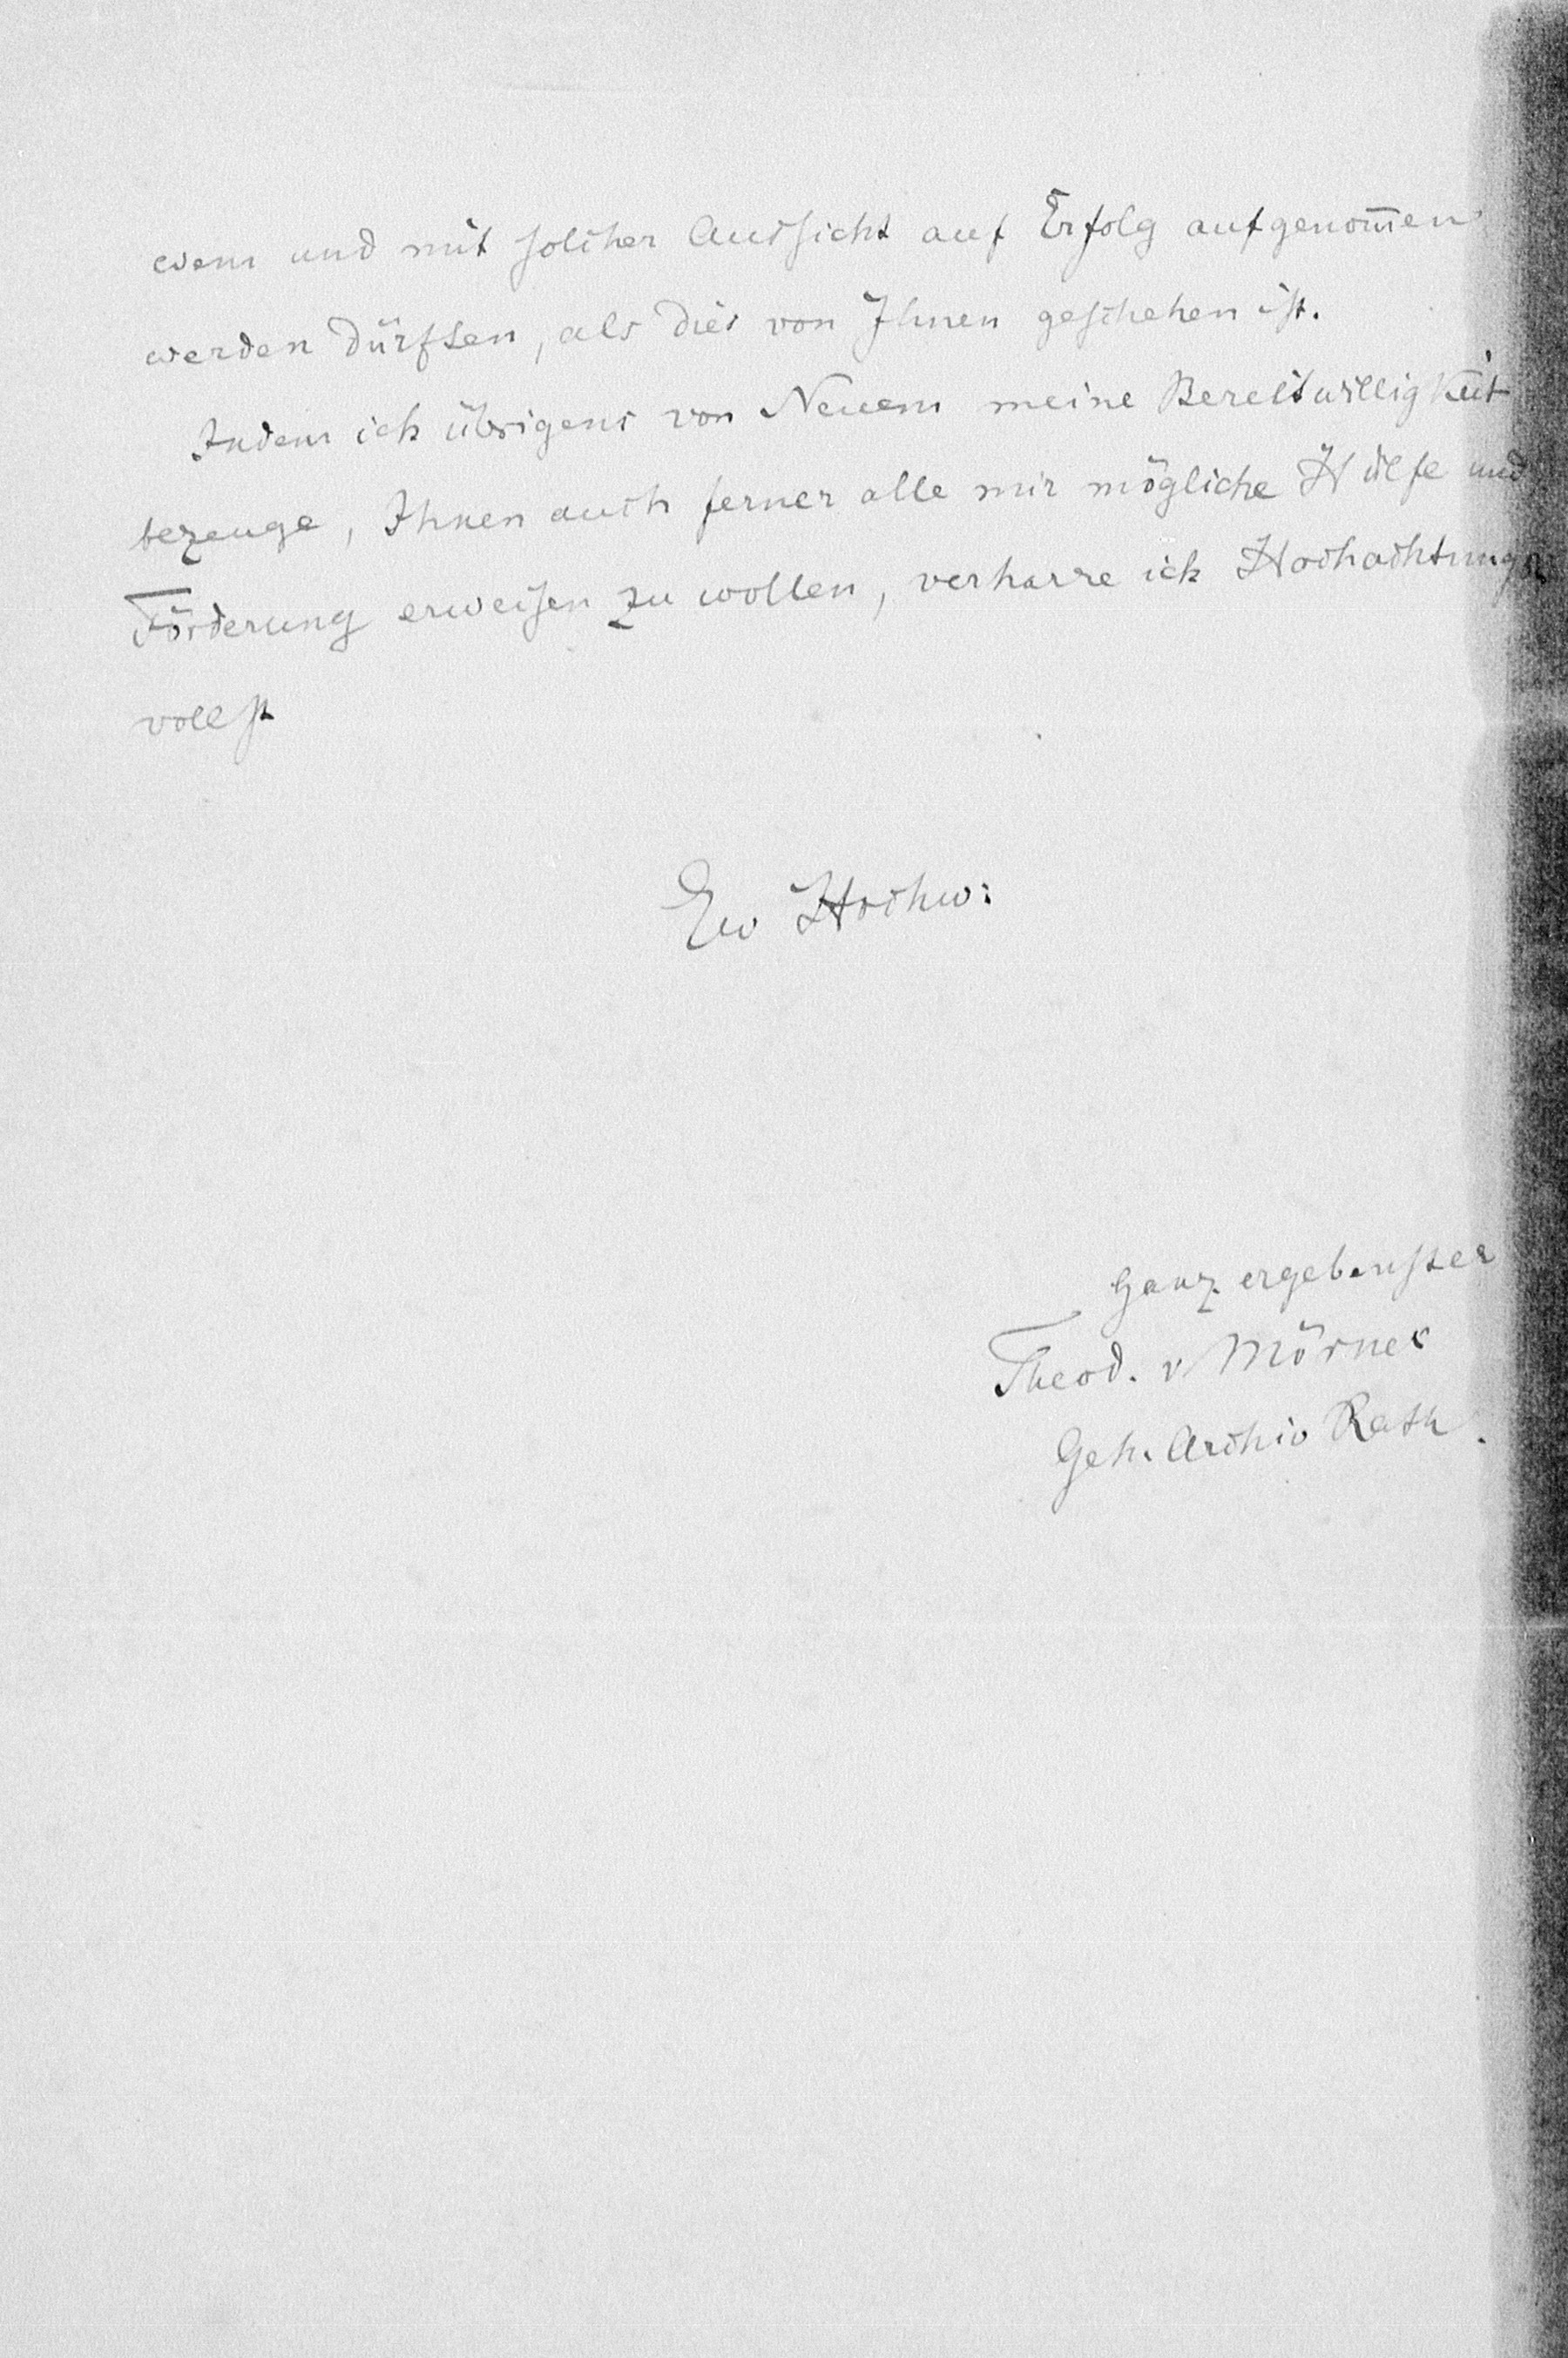 wem und mit solcher Aussicht auf Erfolg aufgenom̅en
werden dürften, als dies von Ihnen geschehen ist.
Indem ich übrigens von Neuem meine Bereitwilligkeit
bezeuge, Ihnen auch ferner alle mir mögliche Hülfe und
Förderung erweisen zu wollen, verharre ich Hochachtungs
vollst
Ew Hochw:
ganz ergebenster
Theod. v Mörner
Geh. Archiv Rath.